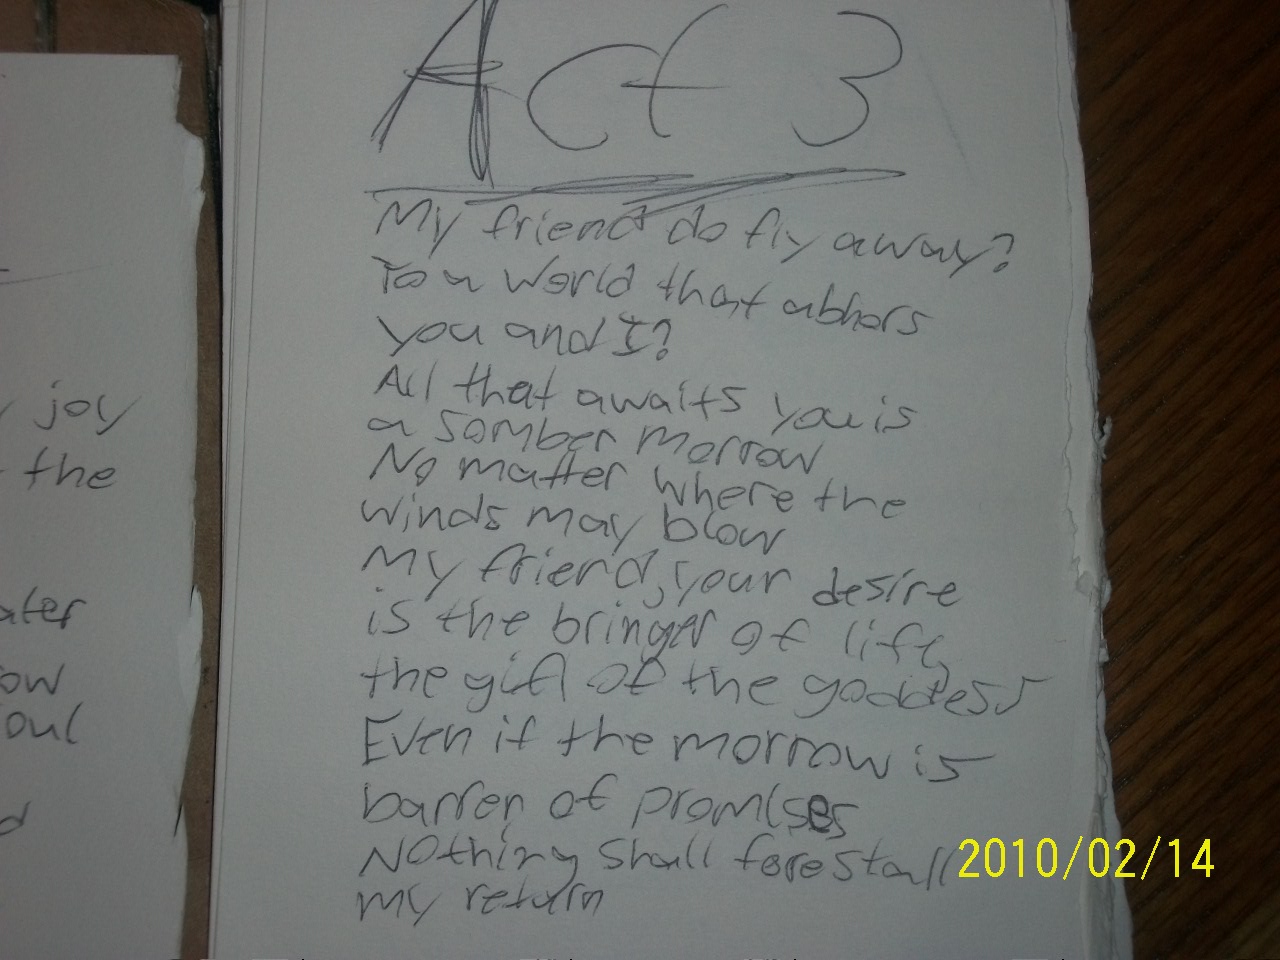 Act 3
My friend do fly away?
To a world that abhors
you and I?
All that awaits you is
a somber morrow
No matter where the
winds may blow
My friend, your desire
is the bringer of life,
the gift of the goddess
Even if the morrow is
barren of promises
Nothing shall forestall
my return
joy
the
ater
ow
oul
d
2010/02/14